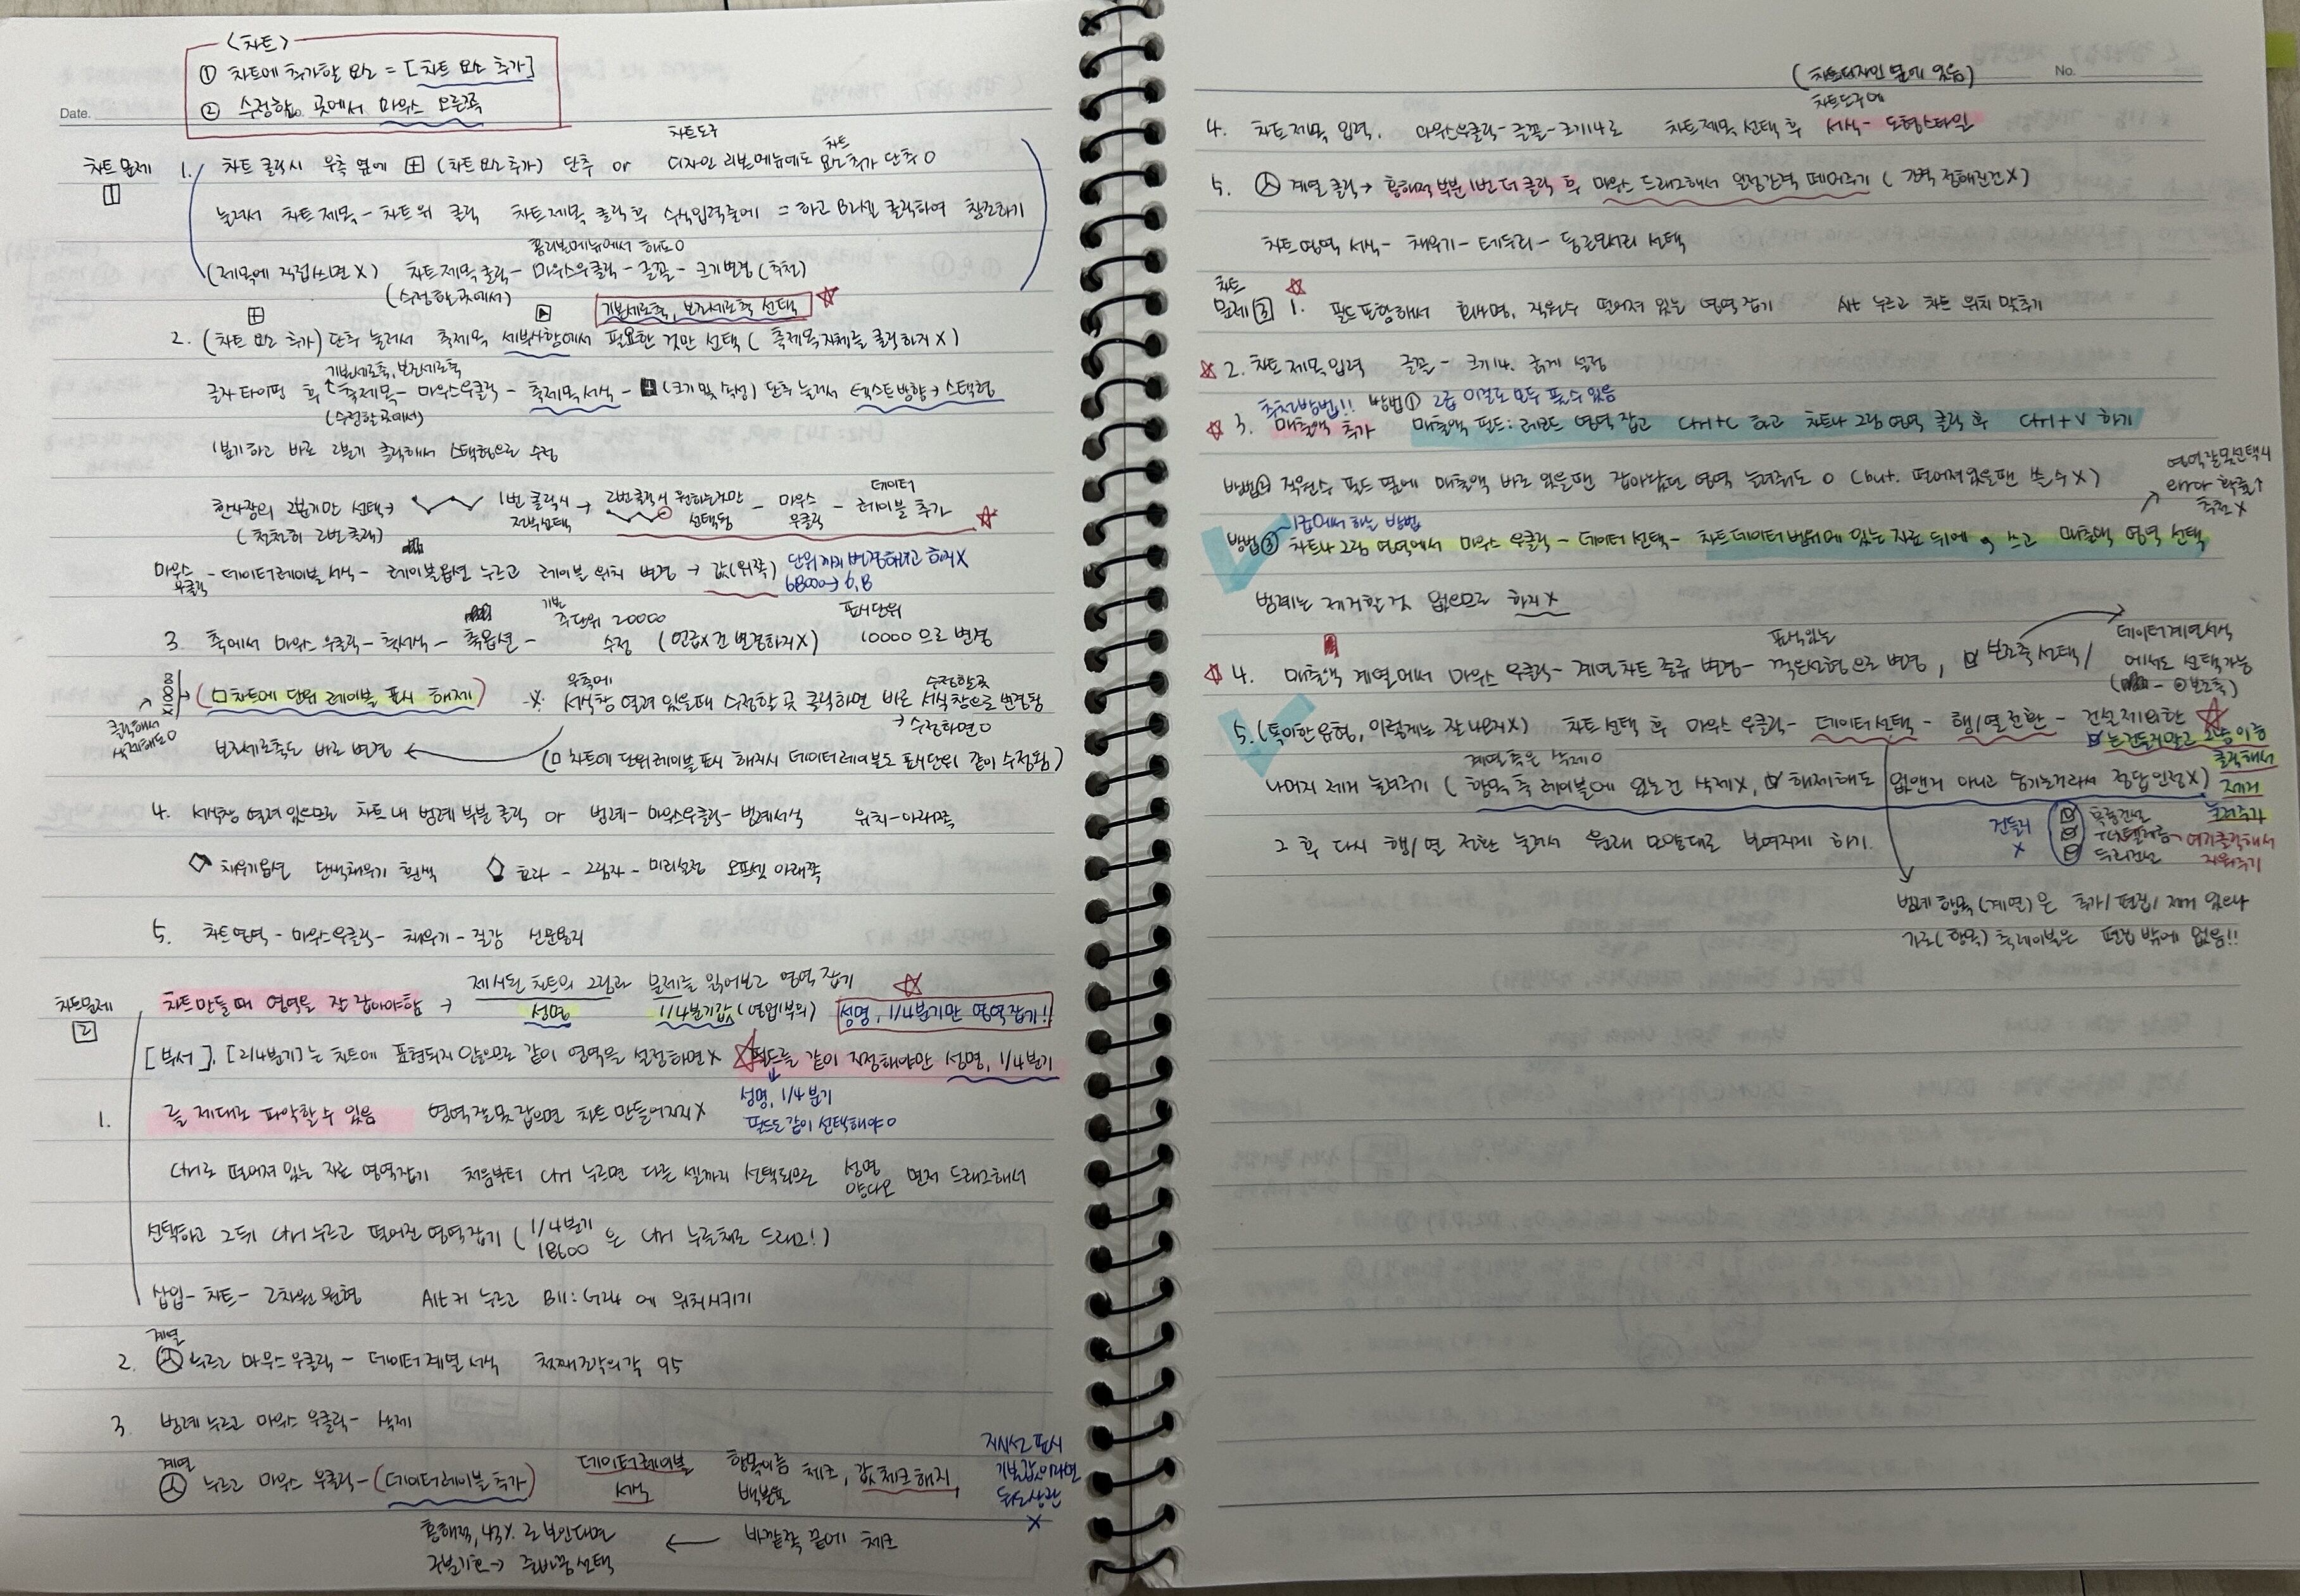 <차트>
① 차트에 추가할 요소 = [차트 요소 추가]
② 수정할 곳에서 마우스 오른쪽
Date.
차트문제 1
차트도구
차트
1. 차트 클릭시 우측 옆에 ⊞ (차트 요소 추가) 단추 or 디자인 리본메뉴에도 요소추가 단추 O
눌러서 차트 제목 - 차트 위 클릭 차트 제목 클릭 후 수식입력줄에 = 하고 B2셀 클릭하여 참조하기
홈리본메뉴에서 해도 O
(제목에 직접쓰면 X) 차트 제목 클릭 - 마우스우클릭 - 글꼴 - 크기변경 (추천)
(수정할 곳에서)
기본세로축, 보조세로축 선택 ☆
2. (차트 요소 추가) 단추 눌러서 축제목 세부사항에서 필요한 것만 선택 ( 축제목 자체를 클릭하지 X )
기본세로축, 보조세로축
글자 타이핑 후 축제목 - 마우스우클릭 - 축제목 서식 - (크기 및 속성) 단추 눌러서 텍스트 방향 → 스택형
(수정할 곳에서)
1분기 하고 바로 2분기 클릭해서 스택형으로 수정
한사장의 2분기만 선택 → 1번 클릭시 전부선택 → 2번 클릭시 원하는것만 선택됨 - 마우스 우클릭 - 데이터 레이블 추가 ☆
( 천천히 2번 클릭 )
마우스 우클릭 - 데이터레이블 서식 - 레이블옵션 누르고 레이블 위치 변경 → 값(위쪽) 단위까지 변경하려고 하지 X
68000 → 6.8
기본
표시단위
3. 축에서 마우스 우클릭 - 축서식 - 축옵션 - 주단위 20000 수정 (언급X건 변경하지X) 10000 으로 변경
X10000 → ( □ 차트에 단위 레이블 표시 해제 )
클릭해서 삭제해도 O
※ 우측에 서식창 열려 있을때 수정할 곳 클릭하면 바로 수정할곳 서식창으로 변경됨
→ 수정하면 O
보조세로축도 바로 변경 ← ( □ 차트에 단위레이블 표시 해제시 데이터레이블도 표시단위 같이 수정됨 )
4. 서식창 열려 있으므로 차트 내 범례 부분 클릭 or 범례 - 마우스우클릭 - 범례서식 위치 - 아래쪽
채우기옵션 단색채우기 흰색 효과 - 그림자 - 미리설정 오프셋 아래쪽
5. 차트영역 - 마우스우클릭 - 채우기 - 질감 신문용지
차트문제 2
제시된 차트의 그림과 문제를 읽어보고 영역 잡기
차트만들때 영역을 잘 잡아야함 → 성명 1/4분기값 (영업1부의) 성명, 1/4분기만 영역잡기! ☆
[부서], [2/4분기]는 차트에 표현되지 않으므로 같이 영역을 설정하면 X ☆필드를 같이 지정해야만 성명, 1/4분기
성명, 1/4분기
1. 를 제대로 파악할 수 있음 영역 잘못 잡으면 차트 만들어지지 X
필드도 같이 선택해야 O
Ctrl로 떨어져 있는 자료 영역잡기 처음부터 Ctrl 누르면 다른 셀까지 선택되므로 성명 먼저 드래그해서
선택하고 그뒤 Ctrl 누르고 떨어진 영역잡기 ( 1/4분기 18600 은 Ctrl 누른채로 드래그! )
삽입 - 차트 - 2차원 원형 Alt키 누르고 B11:G24 에 위치시키기
계열
2. 누르고 마우스우클릭 - 데이터 계열 서식 첫째조각의 각 95
3. 범례 누르고 마우스 우클릭 - 삭제
계열
누르고 마우스 우클릭 - (데이터레이블 추가) 데이터레이블 서식 항목이름 백분율 체크, 값 체크해지,
지시선 표시 기본값이라면 둬도상관 X
홍해적, 43% 로 보인다면 ← 바깥쪽 끝에 체크
구분기호 → 줄바꿈 선택
(차트디자인 옆에 있음)
No.
차트도구에
4. 차트제목 입력. 마우스우클릭 - 글꼴 - 크기14로 차트 제목 선택 후 서식 - 도형스타일
5. 계열 클릭 → 홍해적 부분 1번 더 클릭 후 마우스 드래그해서 일정간격 떼어주기 ( 간격 정해진건 X )
차트영역 서식 - 채우기 - 테두리 - 둥근모서리 선택
차트문제 3
☆
1. 필드 포함해서 회사명, 직원수 떨어져 있는 영역 잡기 Alt 누르고 차트 위치 맞추기
☆ 2. 차트제목 입력 글꼴 - 크기14. 굵게 설정
추천방법!! 방법① 2급 이걸로 모두 풀수있음
☆ 3. 매출액 추가 매출액 필드:레코드 영역 잡고 Ctrl+C 하고 차트나 그림 영역 클릭 후 Ctrl+V 하기
방법② 직원수 필드 옆에 매출액 바로 있을땐 잡아놨던 영역 늘려줘도 O (but. 떨어져있을땐 쓸 수 X )
영역잘못선택시 error 확률↑ 추천 X
1급에서 하는 방법
방법③ 차트나 그림 영역에서 마우스 우클릭 - 데이터 선택 - 차트데이터 범위에 있는 자료 뒤에 , 쓰고 매출액 영역 선택
범례는 제거할 것 없으므로 하지 X
표식있는
☆ 4. 매출액 계열에서 마우스 우클릭 - 계열 차트 종류 변경 - 꺾은선형으로 변경, ☑ 보조축 선택 /
데이터계열서식 에서도 선택가능
( - ⊙보조축)
5. (특이한유형, 이렇게는 잘나오지X) 차트 선택 후 마우스 우클릭 - 데이터 선택 - 행/열 전환 - 건설 제외한 ☆
☑는 건들지말고 이름 클릭해서 제거 눌러주기
계열 축은 삭제 O
나머지 제거 눌러주기 ( 항목 축 레이블에 있는건 삭제X, ☑ 해제해도 없앤게 아니고 숨기는거라서 정답인정X )
건들기 X
두리건설
여기클릭해서 지워주기
그 후 다시 행/열 전환 눌러서 원래 모양대로 보여지게 하기.
범례 항목(계열)은 추가/편집/제거 있으나
가로(항목) 축레이블은 편집 밖에 없음!!